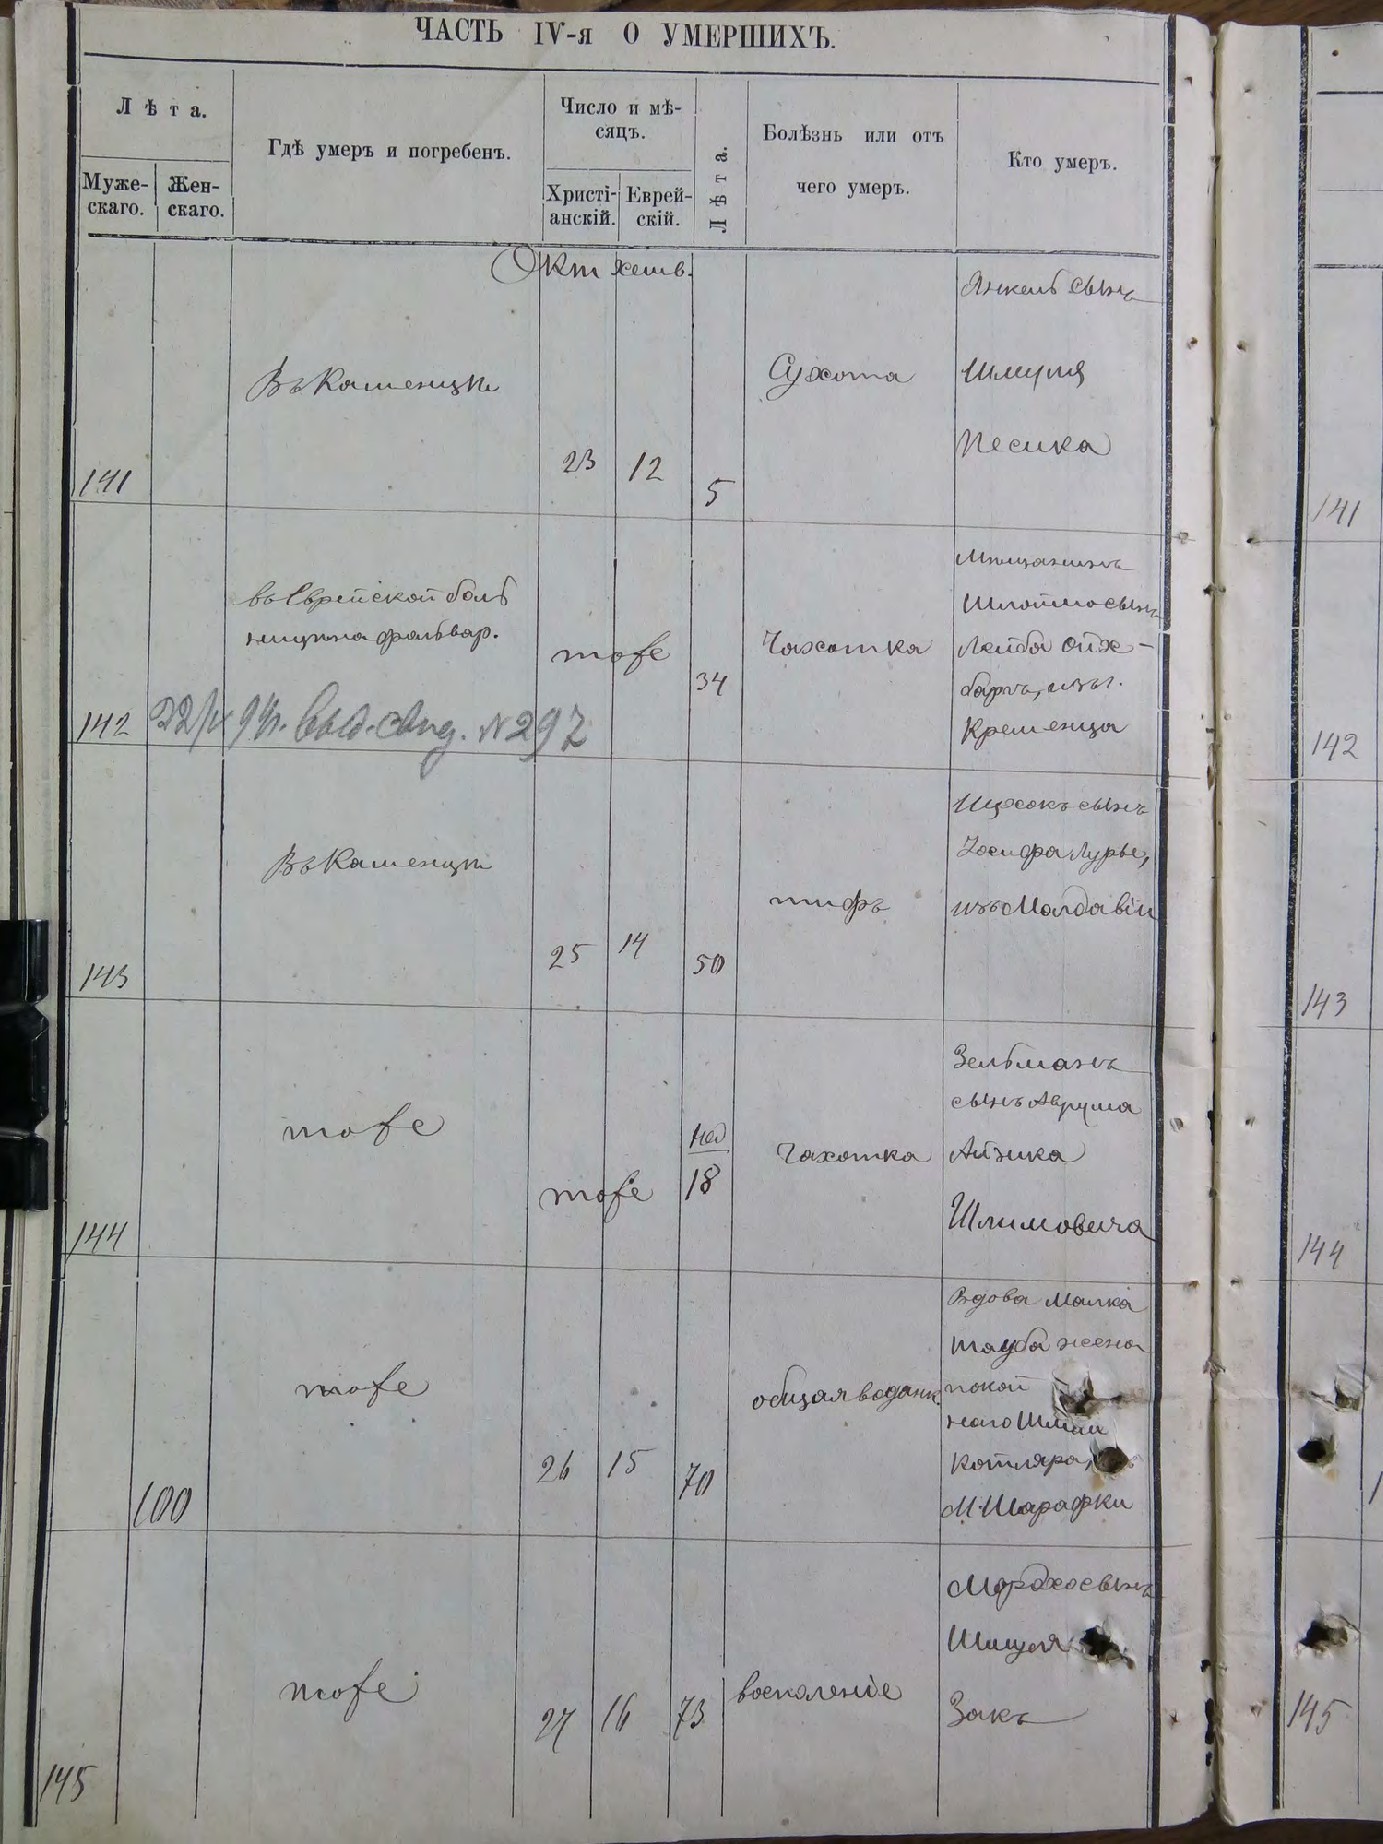 ЧАСТЬ IV-я О УМЕРШИХЪ.
Лѣта.
Муже-
скаго.
Жен-
скаго.
Гдѣ умеръ и погребенъ.
Число и мѣ-
сяцъ.
Христі-
анскій.
Еврей-
скій.
Лѣта.
Болѣзнь или отъ
чего умеръ.
Кто умеръ.
Окт хешв.
141
Въ Каменцѣ
23
12
5
Сухота
Янкель сынъ
Шмуля
Песика
141
142
въ Еврейской боль
ницѣ на фольвар.
тоже
34
Чахотка
Мѣщанинъ
Шлойма сынъ
Лейба Ойх-
барг, изъ г.
Кременца
22/IX 91 г. выд. свид. № 297
142
143
Въ Каменцѣ
25
14
50
тифъ
Ицхокъ сынъ
Іосифа Лурье,
изъ Молдавіи
143
144
тоже
тоже
нед
18
Чахотка
Зельманъ
сынъ Аврума
Айзика
Шлимовича
144
100
тоже
26
15
70
общая водянк.
Вдова Малка
Тауба жена
покой
наго
Котляра,
М. Шарафки
145
тоже
27
16
73
воспаленіе
Мордхо сынъ
Шмуля
Закъ
145